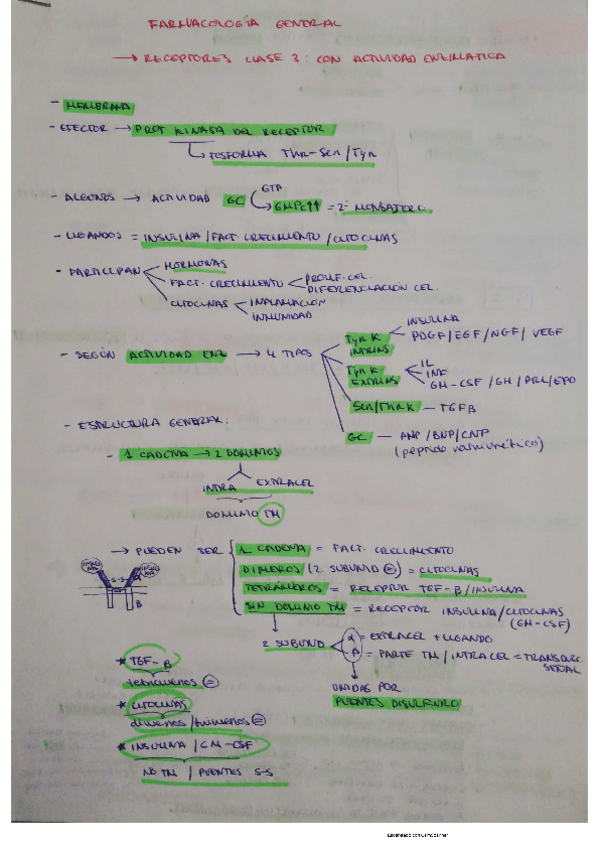 FARMACOLOGÍA GENERAL
→ RECEPTORES CLASE 3: CON ACTIVIDAD ENZIMATICA
- MEMBRANA
- EFECTOR → PROT KINASA DEL RECEPTOR
FOSFORILA Thr-Ser/Tyr
- ALGUNOS → ACTIVIDAD GC
GTP
GMPc↑↑ = 2º MENSAJERO
- LIGANDOS = INSULINA/FACT. CRECIMIENTO/CITOCINAS
- PARTICIPAN
HORMONAS
FACT. CRECIMIENTO
PROLIF. CEL.
DIFERENCIACIÓN CEL.
CITOCINAS
INFLAMACIÓN
INMUNIDAD
- SEGÚN ACTIVIDAD ENZ → 4 TIPOS
Tyr K INTRINS
INSULINA
PDGF/EGF/NGF/VEGF
Tyr K EXTRINS
IL
INF
GM-CSF/GH/PRL/EPO
Ser/Thr K - TGFβ
GC - ANP/BNP/CNP
(peptido natriurético)
- ESTRUCTURA GENERAL:
- 1 CADENA → 2 DOMINIOS
INTRA EXTRACEL
DOMINIO TM
→ PUEDEN SER
1 CADENA = FACT. CRECIMIENTO
DIMEROS (2 SUBUNID =) = CITOCINAS
TETRÁMEROS = RECEPTOR TGF-β/INSULINA
SIN DOMINIO TM = RECEPTOR INSULINA/CITOCINAS
(GM-CSF)
S-S
β
2 SUBUNID
α = EXTRACEL + LIGANDO
β = PARTE TM/INTRACEL = TRANSDUCC SEÑAL
UNIDAS POR
PUENTES DISULFURO
* TGF-β
tetrámeros =
* CITOCINAS
dímeros/trímeros =
* INSULINA/GM-CSF
NO TM / PUENTES S-S
Escaneado con CamScanner